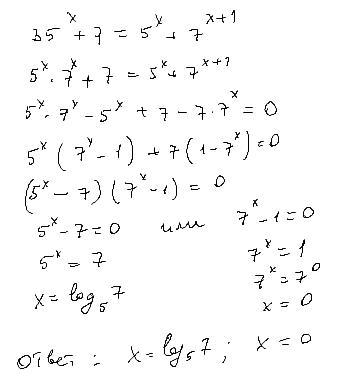 35^x + 7 = 5^x + 7^{x+1}
5^x · 7^x + 7 = 5^x + 7^{x+1}
5^x · 7^x - 5^x + 7 - 7 · 7^x = 0
5^x (7^x - 1) + 7 (1 - 7^x) = 0
(5^x - 7) (7^x - 1) = 0
5^x - 7 = 0 или 7^x - 1 = 0
5^x = 7 7^x = 1
7^x = 7^0
x = log_5 7 x = 0
Ответ : x = log_5 7 ; x = 0